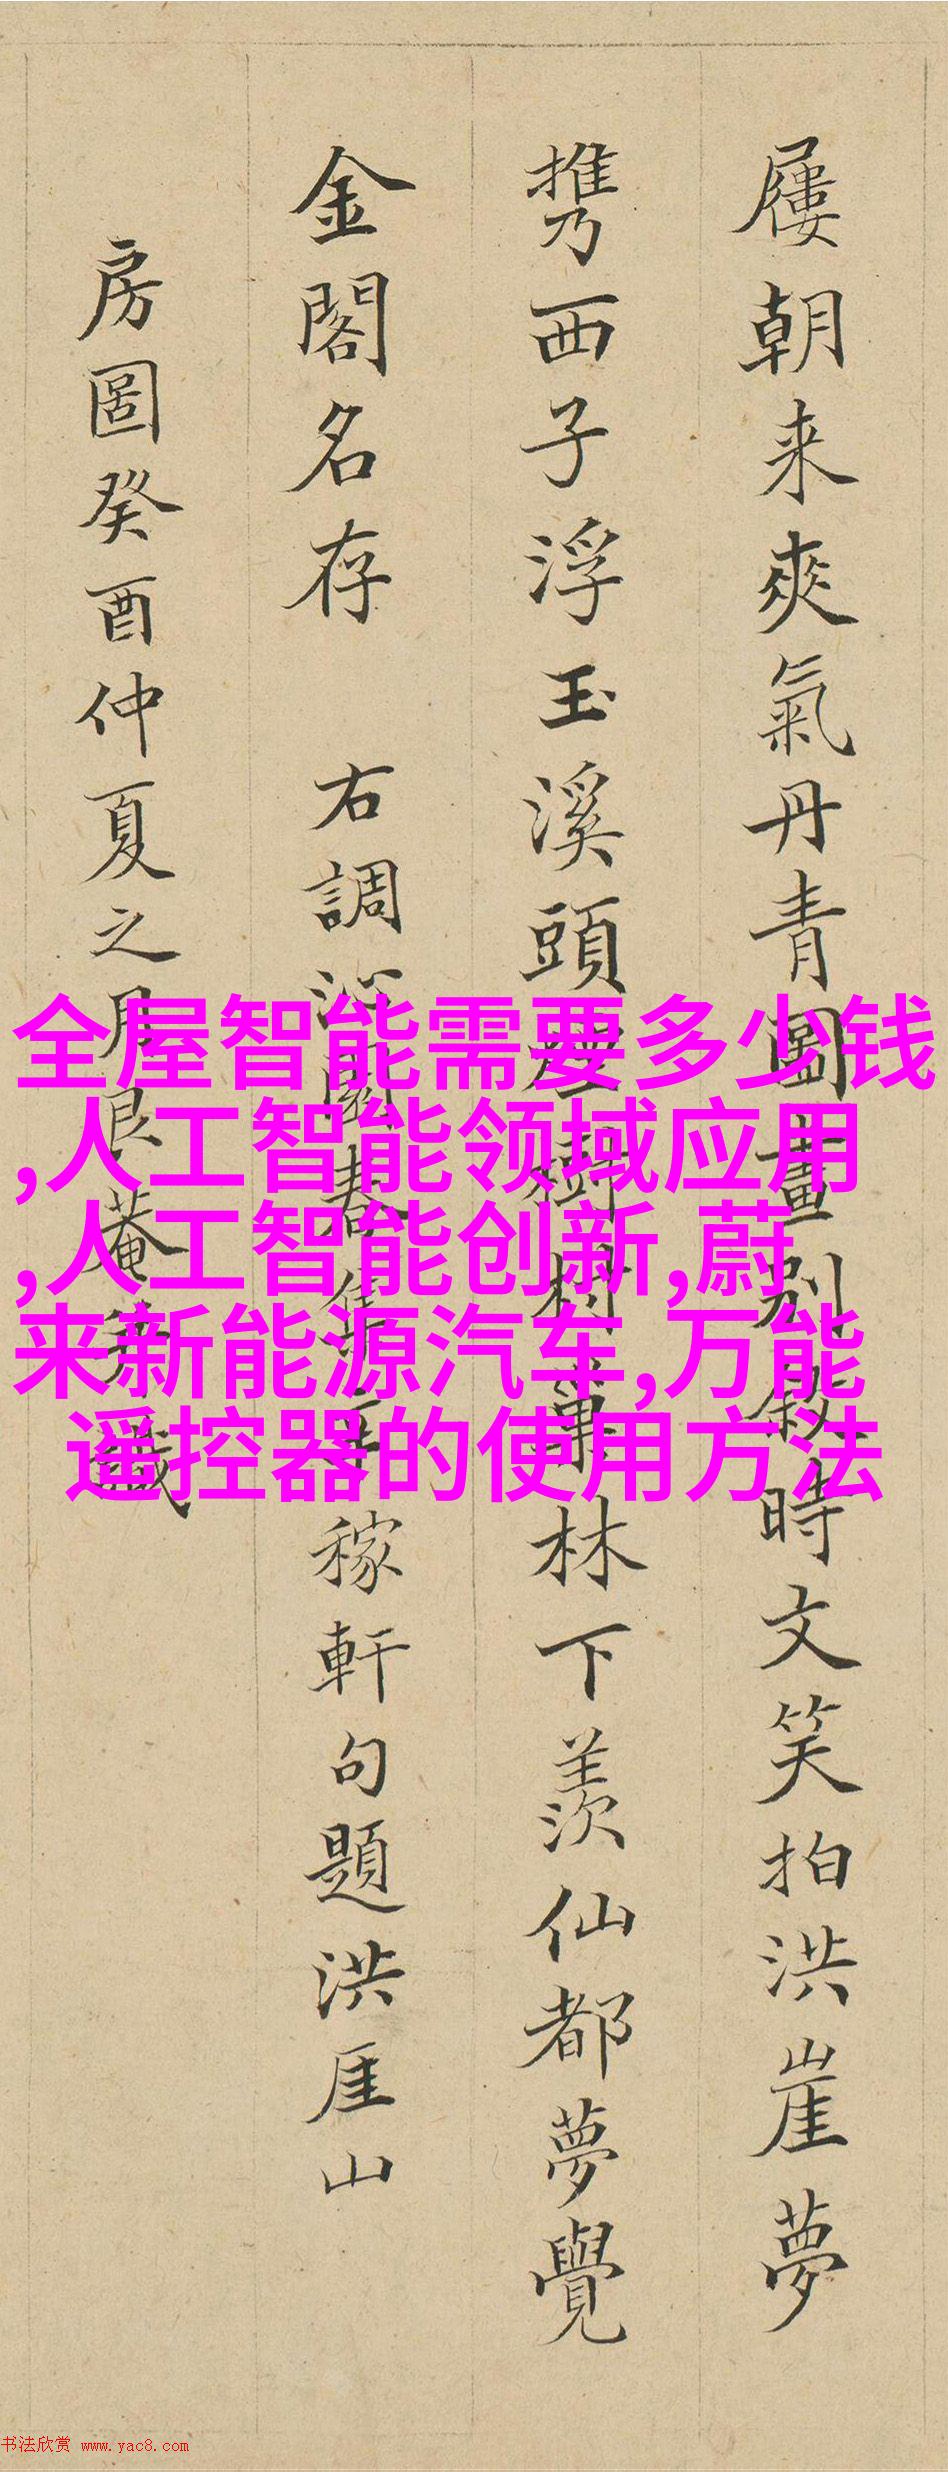 屨朝来爽氣丹青圖畫别敘時文笑拍洪崖夢
携西子浮玉溪頭煙樹村葉林下羨仙都夢覺
金閣名存 右調沁園春集辛稼軒句題洪厓山
房圖癸酉仲夏之月退菴并識
全屋智能需要多少钱
,人工智能领域应用
,人工智能创新,蔚
来新能源汽车,万能
遥控器的使用方法
书法欣赏 www.yac8.com